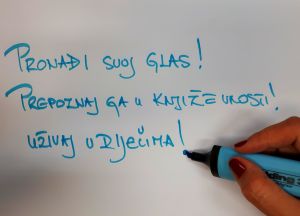 PRONAĐI SVOJ GLAS!
PREPOZNAJ GA U KNJIŽEVNOSTI!
UŽIVAJ U DJEČIMA!
edding